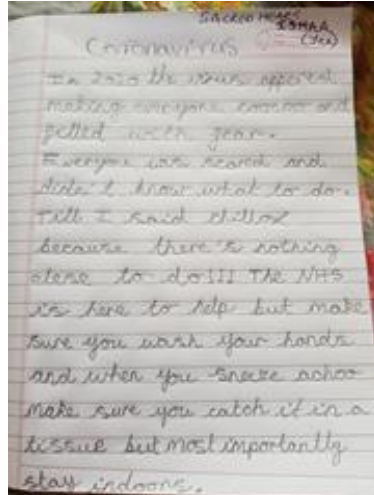 SACRED HEART
ISHAA
Coronavirus
In 2020 the virus appeared
making everyone and
filled with fear.
Everyone was scared and
didn't know what to do.
Till I said chillax
because there's nothing
else to do!!! The NHS
is here to help but make
sure you wash your hands
and when you sneeze achoo
make sure you catch it in a
tissue but most importantly
stay indoors.